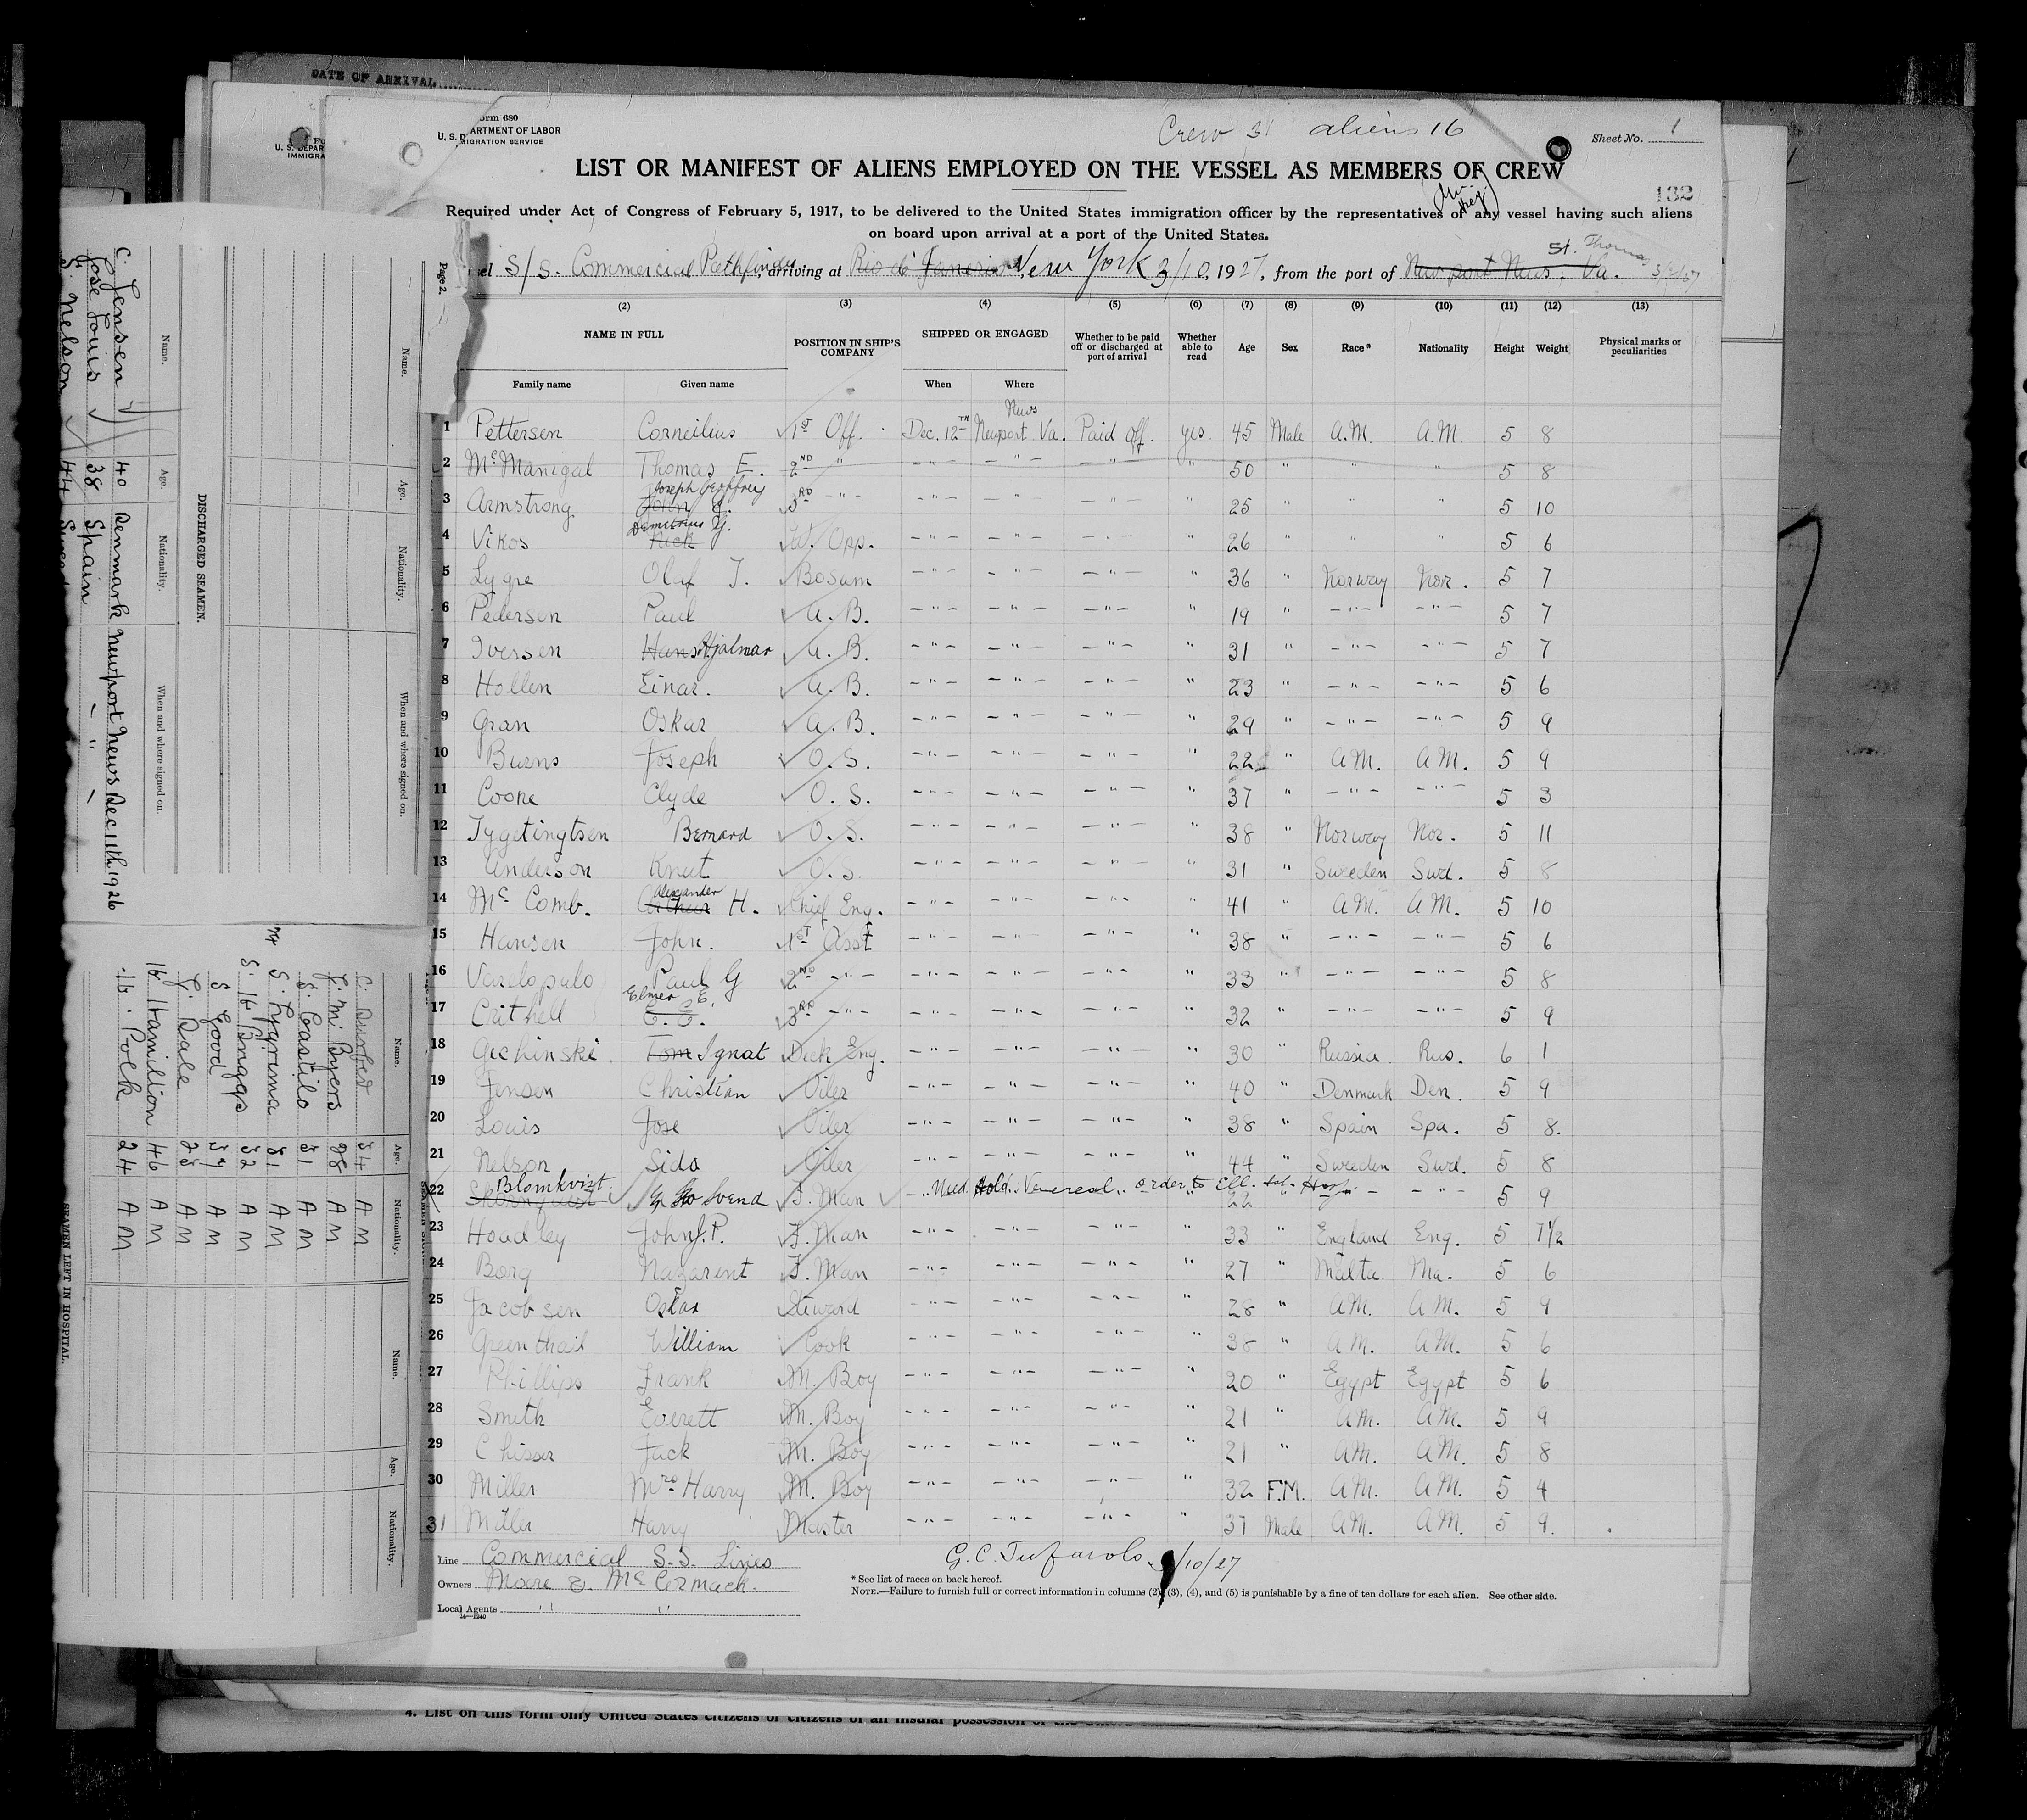 DATE OF ARRIVAL
Form 680
U. S. DEPARTMENT OF LABOR
IMMIGRATION SERVICE
Crew 31 aliens 16
Sheet No. 1
LIST OR MANIFEST OF ALIENS EMPLOYED ON THE VESSEL AS MEMBERS OF CREW
132
Required under Act of Congress of February 5, 1917, to be delivered to the United States immigration officer by the representatives of any vessel having such aliens
on board upon arrival at a port of the United States.
S/S. Commercial Pathfinder, arriving at Rio de Janerio New York 3/10, 1927, from the port of Newport News. Va. St. Thomas
(2) (3) (4) (5) (6) (7) (8) (9) (10) (11) (12) (13)
NAME IN FULL POSITION IN SHIP'S COMPANY SHIPPED OR ENGAGED Whether to be paid off or discharged at port of arrival Whether able to read Age Sex Race* Nationality Height Weight Physical marks or peculiarities
Family name Given name When Where
1 Pettersen Corneilius 1st Off. Dec. 12TH Newport News Va. Paid off. yes. 45 Male A.M. A.M. 5 8
2 McManigal Thomas E. 2ND " -"- -"- -"- " 50 " " " 5 8
3 Armstrong John G. Joseph Geoffrey 3RD -"- -"- -"- -"- " 25 " " " 5 10
4 Vikos Nick Demitrius G. W. Opp. -"- -"- -"- " 26 " " " 5 6
5 Lygre Olaf T. Bosum -"- -"- -"- " 36 " Norway Nor. 5 7
6 Pedersen Paul A. B. -"- -"- -"- " 19 " -"- -"- 5 7
7 Iversen Hans Hjalmar A. B. -"- -"- -"- " 31 " -"- -"- 5 7
8 Hollen Einar. A. B. -"- -"- -"- " 23 " -"- -"- 5 6
9 Gran Oskar A. B. -"- -"- -"- " 29 " -"- -"- 5 9
10 Burns Joseph O. S. -"- -"- -"- " 22 " A.M. A.M. 5 9
11 Cooke Clyde O. S. -"- -"- -"- " 37 " -"- -"- 5 3
12 Tygetingtsen Bernard O. S. -"- -"- -"- " 38 " Norway Nor. 5 11
13 Anderson Knut O. S. -"- -"- -"- " 31 " Sweeden Swd. 5 8
14 Mc Comb. Arthur Alexander H. Chief Eng. -"- -"- -"- " 41 " A.M. A.M. 5 10
15 Hansen John. 1ST Asst -"- -"- -"- " 38 " -"- -"- 5 6
16 Varelopulo Paul G 2ND -"- -"- -"- -"- " 33 " -"- -"- 5 8
17 Crithell E. E. Elmer E. 3RD -"- -"- -"- -"- " 32 " -"- -"- 5 9
18 Gichinski Tom Ignat Deck Eng. -"- -"- -"- " 30 " Russia Rus. 6 1
19 Jensen Christian Oiler -"- -"- -"- " 40 " Denmark Den. 5 9
20 Louis Jose Oiler -"- -"- -"- " 38 " Spain Spa. 5 8.
21 Nelson Sido Oiler -"- -"- -"- " 44 " Sweeden Swd. 5 8
22 Blomkvist Svend F. Man Hold. Venereal order to Ell. Isl. Hosp. 22 -"- 5 9
23 Hoadley John J. P. F. Man -"- -"- -"- " 33 " England Eng. 5 7 1/2
24 Borg Nazarent F. Man -"- -"- -"- " 27 " Malta. Ma. 5 6
25 Jacobsen Oskar Steward -"- -"- -"- " 28 " A.M. A.M. 5 9
26 Greenthail William Cook -"- -"- -"- " 38 " A.M. A.M. 5 6
27 Phillips Frank M. Boy -"- -"- -"- " 20 " Egypt Egypt 5 6
28 Smith Everett M. Boy -"- -"- -"- " 21 " A.M. A.M. 5 9
29 Chisser Jack M. Boy -"- -"- -"- " 21 " A.M. A.M. 5 8
30 Miller Mrs Harry M. Boy -"- -"- -"- " 32 F.M. A.M. A.M. 5 4
31 Miller Harry Master -"- -"- -"- " 37 Male A.M. A.M. 5 9.
Line Commercial S.S. Lines
Owners Moore & McCormack.
Local Agents " "
14—1240
G. C. Tufarolo 3/10/27
* See list of races on back hereof.
NOTE.—Failure to furnish full or correct information in columns (2), (3), (4), and (5) is punishable by a fine of ten dollars for each alien. See other side.
Page 2.
DISCHARGED SEAMEN.
Name. Age. Nationality. When and where signed on.
Name. Age. Nationality. When and where signed on.
C. Jensen 40 Denmark Newport News Dec 11th 1926
Jose Louis 38 Spain " "
S. Nelson 44
SEAMEN LEFT IN HOSPITAL.
Name. Age. Nationality. Name. Age. Nationality.
C. Durbed 34 A M
J. M. Byers 28 A M
S. Castilo 31 A M
S. Lygrema 31 A M
S. H Briggs 32 A M
S Good 37 A M
J. Dale 25 A M
H Hamilton 46 A M
H. Polk 24 A M
4. List on this form only United States citizens or citizens of an insular possession of the United